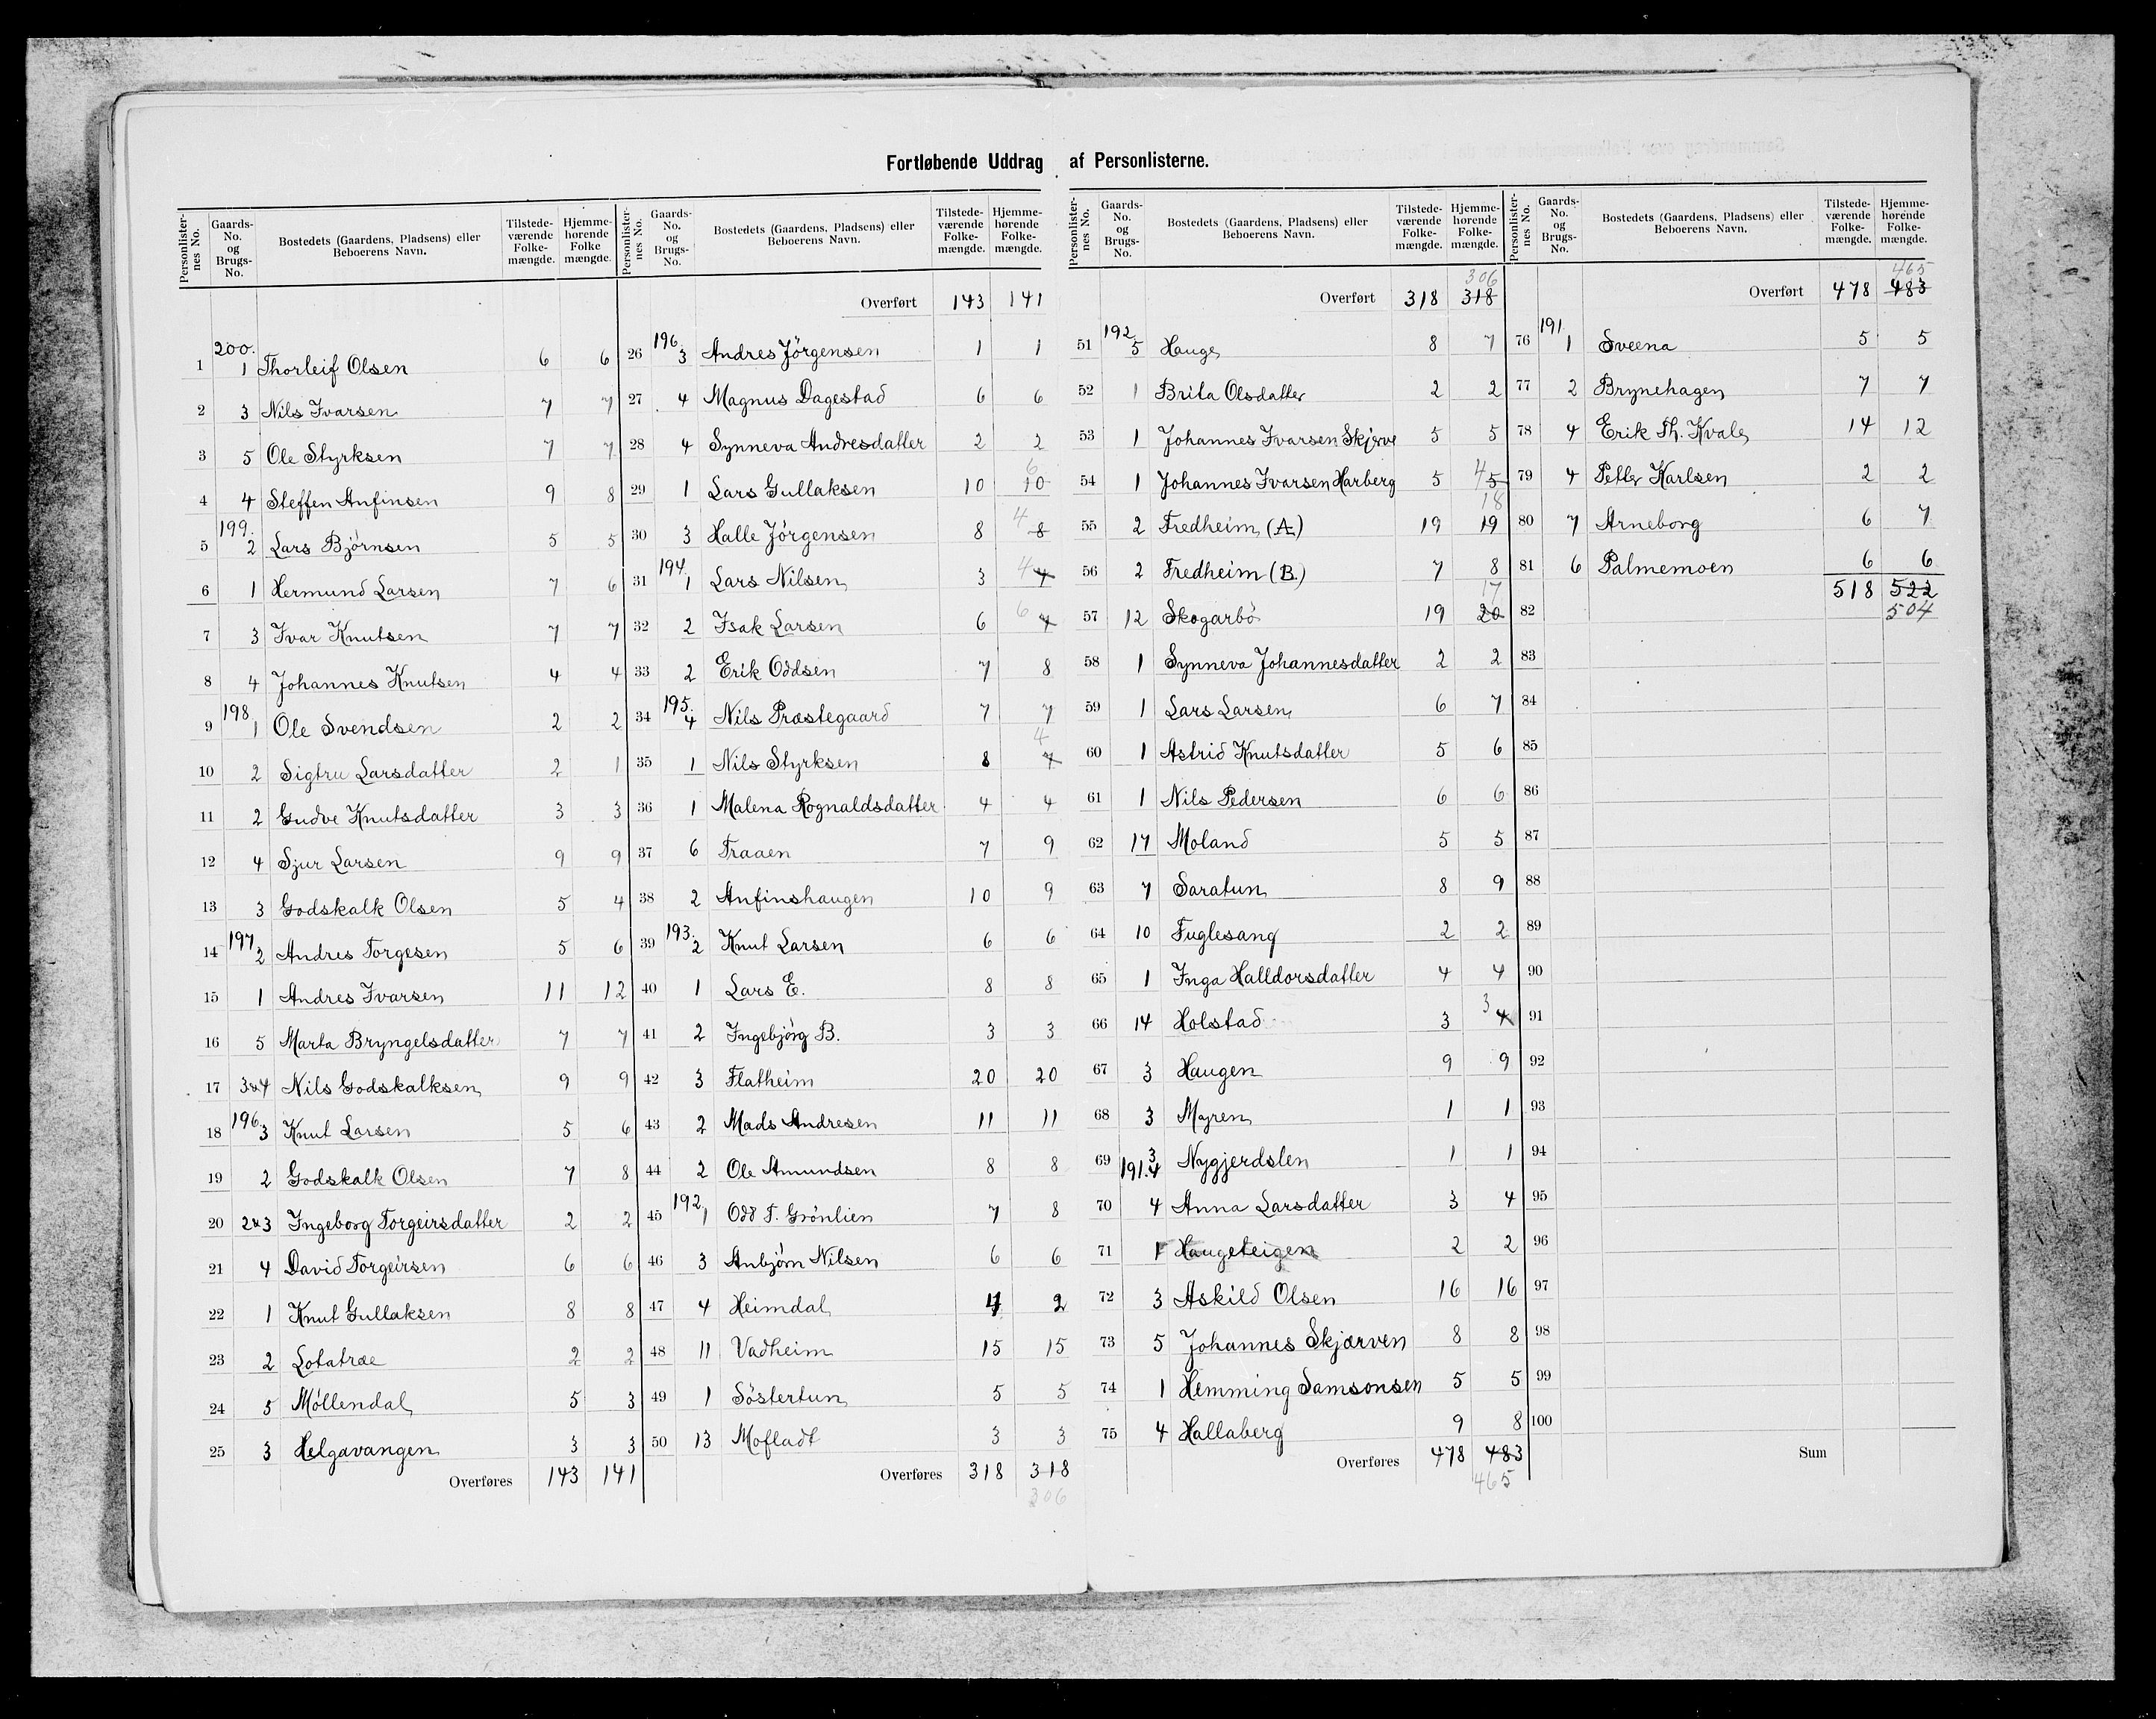 Fortløbende Uddrag af Personlisterne.
Personlister-nes No. | Gaards-No. og Brugs-No. | Bostedets (Gaardens, Pladsens) eller Beboerens Navn. | Tilstede-værende Folke-mængde. | Hjemme-hørende Folke mængde.
1 200. 1 Thorleif Olsen 6 6
2 3 Nils Ivarsen 7 7
3 5 Ole Styrksen 7 7
4 4 Steffen Anfinsen 9 8
5 199. 2 Lars Bjørnsen 5 5
6 1 Hermund Larsen 7 6
7 3 Ivar Knutsen 7 7
8 4 Johannes Knutsen 4 4
9 198. 1 Ole Svendsen 2 2
10 2 Sigtru Larsdatter 2 1
11 2 Gudve Knutsdatter 3 3
12 4 Sjur Larsen 9 9
13 3 Godskalk Olsen 5 4
14 197. 2 Andres Torgesen 5 6
15 1 Andres Ivarsen 11 12
16 5 Marta Bryngelsdatter 7 7
17 3&4 Nils Godskalksen 9 9
18 196. 3 Knut Larsen 5 6
19 2 Godskalk Olsen 7 8
20 2&3 Ingeborg Torgeirsdatter 2 2
21 4 David Torgeirsen 6 6
22 1 Knut Gullaksen 8 8
23 2 Lotatræ 2 2
24 5 Möllendal 5 3
25 3 Helgavangen 3 3
Overføres 143 141
Personlister-nes No. | Gaards-No. og Brugs-No. | Bostedets (Gaardens, Pladsens) eller Beboerens Navn. | Tilstede-værende Folke-mængde. | Hjemme-hørende Folke-mængde.
Overført 143 141
26 196. 3 Andres Jörgensen 1 1
27 4 Magnus Dagestad 6 6
28 4 Synneva Andresdatter 2 2
29 1 Lars Gullaksen 10 10 6
30 3 Halle Jörgensen 8 8 4
31 194. 1 Lars Nilsen 3 4
32 2 Isak Larsen 6 7 6
33 2 Erik Oddsen 7 8
34 195. 4 Nils Præstegaard 7 7
35 1 Nils Styrksen 8 7 4
36 1 Malena Rognaldsdatter 4 4
37 6 Traaen 7 9
38 2 Anfinshaugen 10 9
39 193. 2 Knut Larsen 6 6
40 1 Lars E. 8 8
41 2 Ingebjörg B. 3 3
42 3 Flatheim 20 20
43 2 Mads Andresen 11 11
44 2 Ole Amundsen 8 8
45 192. 1 Odd T. Grönlien 7 8
46 3 Anbjörn Nilsen 6 6
47 4 Heimdal 2
48 11 Vadheim 15 15
49 1 Söstertun 5 5
50 13 Mofladt 3 3
Overføres 318 318
306
Personlister-nes No. | Gaards-No. og Brugs-No. | Bostedets (Gaardens, Pladsens) eller Beboerens Navn. | Tilstede-værende Folke-mængde. | Hjemme-hørende Folke-mængde.
306
Overført 318 318
51 192. 5 Hauge 8 7
52 1 Brita Olsdatter 2 2
53 1 Johannes Ivarsen Skjerve 5 5
54 1 Johannes Ivarsen Harberg 5 5 4
55 2 Fredheim (A) 19 19 18
56 2 Fredheim (B.) 7 8
57 12 Skogarbö 19 20 17
58 1 Synneva Johannesdatter 2 2
59 1 Lars Larsen 6 7
60 1 Astrid Knutsdatter 5 6
61 1 Nils Pedersen 6 6
62 17 Moland 5 5
63 7 Saratun 8 9
64 10 Fuglesang 2 2
65 1 Inga Halldorsdatter 4 4
66 14 Holstad 3 4 3
67 3 Haugen 9 9
68 3 Myren 1 1
69 3 191. 4 Nygjerdslen 1 1
70 4 Anna Larsdatter 3 4
71 1 Haugeteigen 2 2
72 3 Askild Olsen 16 16
73 5 Johannes Skjærven 8 8
74 1 Hemming Samsonsen 5 5
75 4 Hallaberg 9 8
Overføres 478 483
465
Personlister-nes No. | Gaards-No. og Brugs-No. | Bostedets (Gaardens, Pladsens) eller Beboerens Navn. | Tilstede-værende Folke-mængde. | Hjemme-hørende Folke-mængde.
465
Overført 478 483
76 191. 1 Sveena 5 5
77 2 Brynehagen 7 7
78 4 Erik Th. Kvale 14 12
79 4 Petter Karlsen 2 2
80 7 Arneborg 6 7
81 6 Palmemoen 6 6
518 522
82 504
83
84
85
86
87
88
89
90
91
92
93
94
95
96
97
98
99
100
Sum